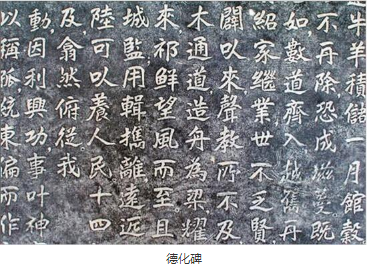 牛羊積儲一月館穀
不再除恐成滋蔓既
如數道齊入越巂再
紹家繼業世不乏賢
闢以來聲教所不及
木通道造舟為梁耀
來祁鮮望風而至且
城監用輯攜離遠近
陸可以養人民十四
及翕然俯從我
動因利興功事叶神
以稱統東偏而作
德化碑